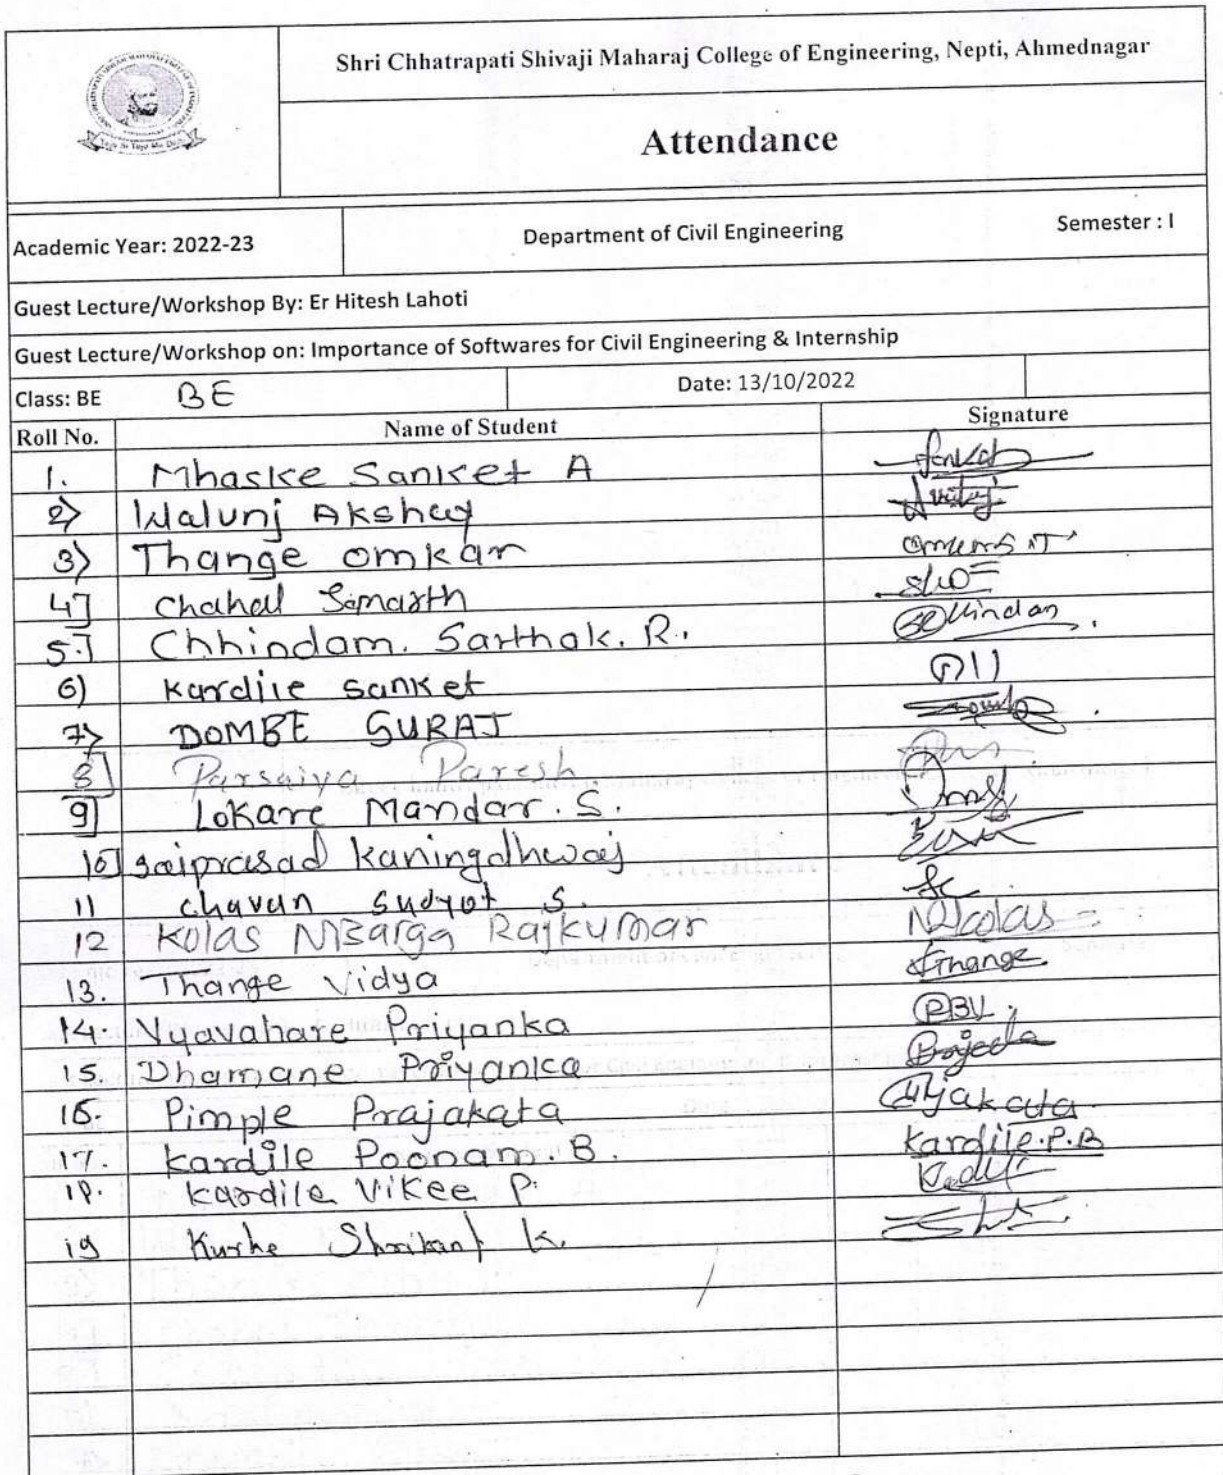 Shri Chhatrapati Shivaji Maharaj College of Engineering, Nepti, Ahmednagar
Attendance
Academic Year: 2022-23 Department of Civil Engineering Semester : I
Guest Lecture/Workshop By: Er Hitesh Lahoti
Guest Lecture/Workshop on: Importance of Softwares for Civil Engineering & Internship
Class: BE BE Date: 13/10/2022
Roll No. Name of Student Signature
1. Mhaske Sanket A
2) Walunj Akshay
3) Thange omkar
4] Chahal Samarth
5.] Chhindam. Sarthak. R.
6) Kardile Sanket
7) DOMBE SURAJ
8] Parsaiya Paresh.
9] Lokare Mandar. S.
10] Saiprasad Kaningdhwaj
11 Chavan Sudyot S.
12 Kolas Rajkumar Nkolas
13. Thange Vidya Thange
14. Vyavahare Priyanka PBV.
15. Dhamane Priyanka
16. Pimple Prajakata
17. Kardile Poonam. B. Kardile.P.B
18. Kardile Vikee P.
19 Kurhe Shrikant K.